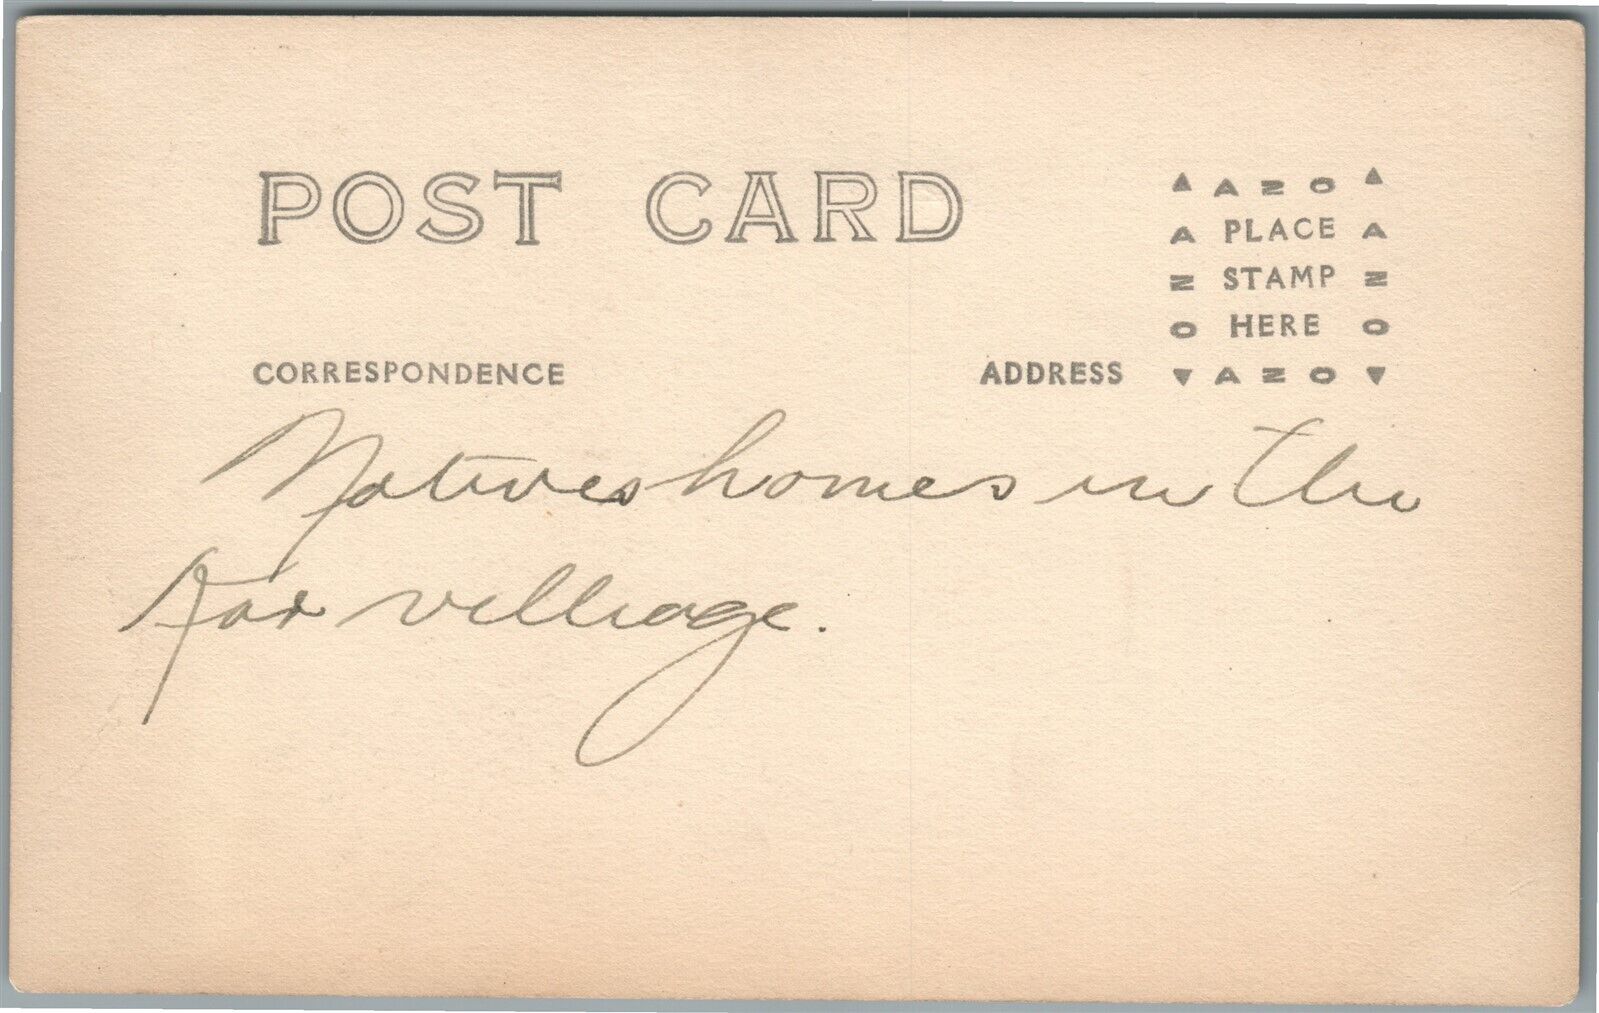 POST CARD
AZO
A PLACE A
Z STAMP Z
O HERE O
CORRESPONDENCE ADDRESS AZO
Natives homes in the
village.